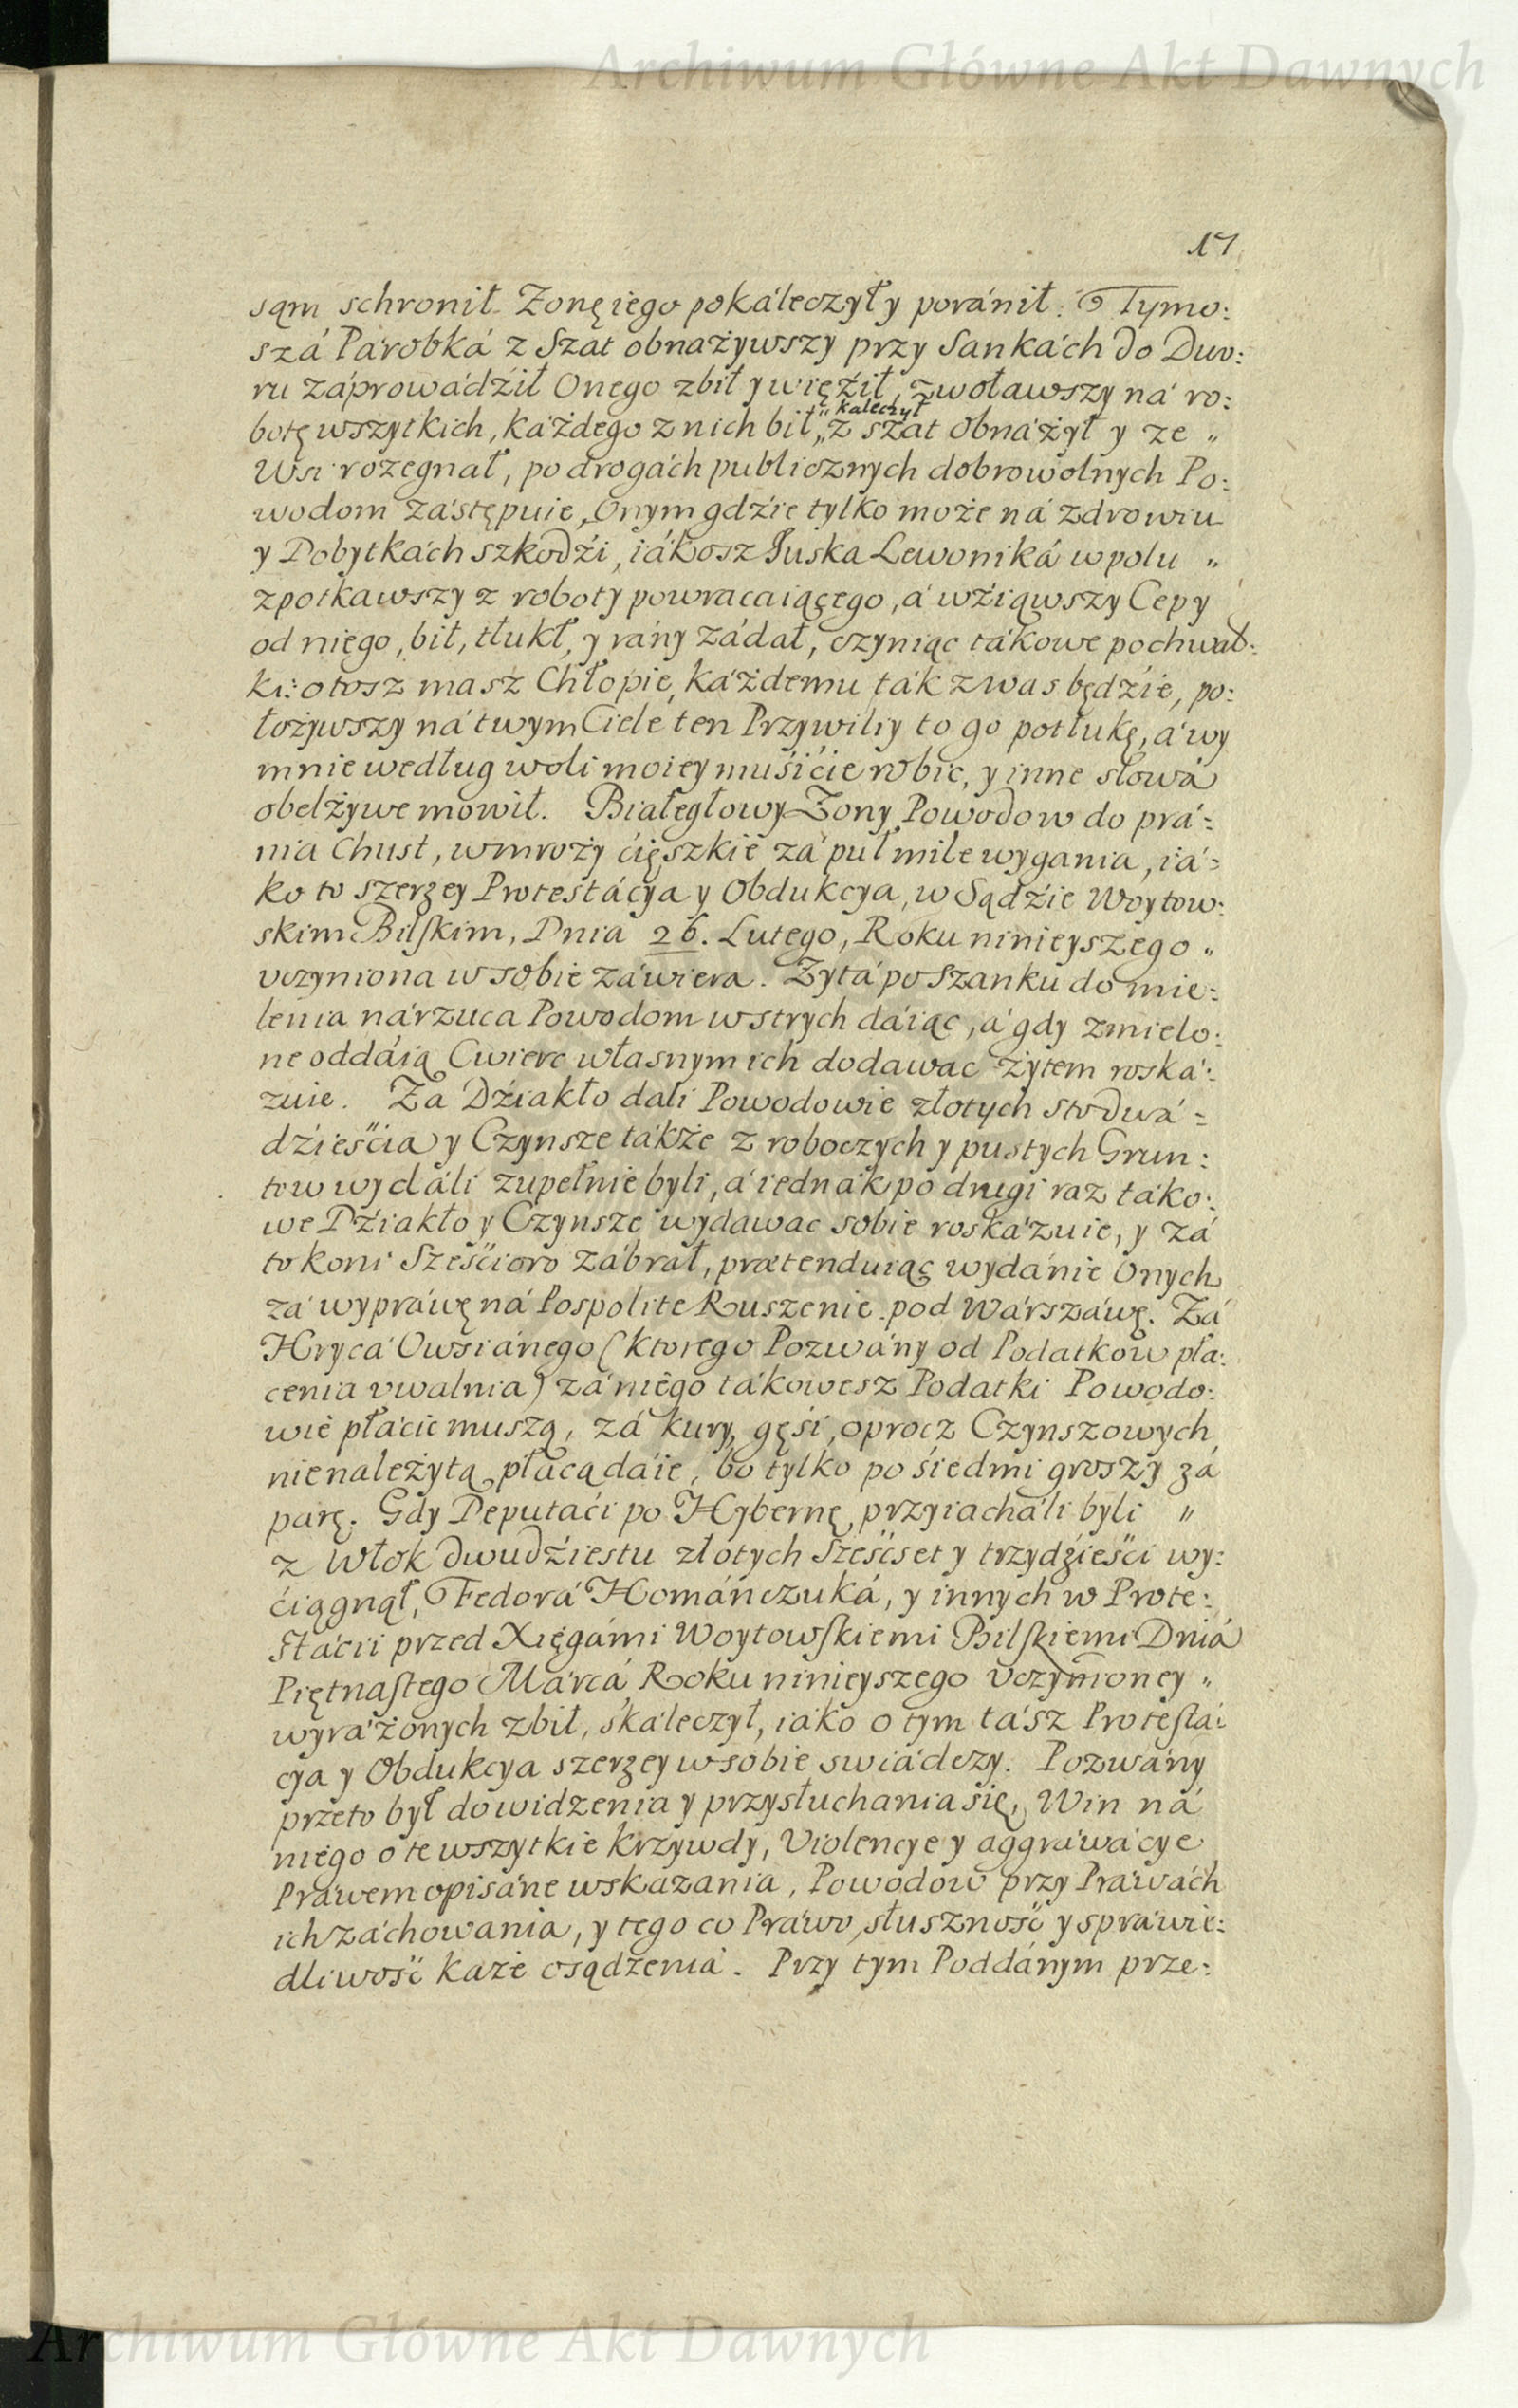 Archiwum Główne Akt Dawnych
17
sąm schronił. Zonę iego pokáleczył y poránił. Tymo:
szá Párobká z Szat obnażywszy przy Sankách do Dwo:
ru záprowádźił Onego zbił y więźił, zwoławszy ná ro:
kaleczył
botę wszytkich, káżdego z nich bił „ z szat obnáżył y ze „
Wsi rozegnał, po drogách publicznych dobrowolnych Po:
wodom zástępuie, Onym gdźie tylko może ná zdrowiu
y Dobytkách szkodźi, iákosz Łuska Lewoniká w polu „
zpotkawszy z roboty powracaiącego, á wźiąwszy Cepy
od niego, bił, tłukł, y rány zádał, czyniąc tákowe pochwał:
ki: otosz masz Chłopie, káżdemu ták z was będźie, po:
łożywszy ná twym Ciele ten Przywiliy to go potłukę, á wy
mnie według woli moiey muśićie robic, y inne słowá
obelżywe mowił. Białegłowy Zony Powodow do prá:
nia Chust, w mroźy ćięszkie zá puł mile wygania, iá:
ko to szerzey Protestácya y Obdukcya, w Sądźie Woytow:
skim Bilskim, Dnia 26. Lutego, Roku ninieyszego „
vczyniona w sobie záwiera. Zytá po Szanku do mie:
lenia nárzuca Powodom w strych dáiąc, á gdy zmielo:
ne oddáią Cwierc własnym ich dodawac żytem roská:
zuie. Za Dźiakło dali Powodowie złotych sto dwá:
dźieśćia y Czynsze tákże z roboczych y pustych Grun:
tow wydáli zupełnie byli, á iednák po drugi raz táko:
we Dźiakło y Czynsze wydawac sobie roskázuie, y zá
to koni Sześcioro zábrał, prætenduiąc wydánie Onych
zá wypráwę ná Pospolite Ruszenie pod Wárszáwę. Zá
Hrycá Owsiánego (ktorego Pozwány od Podatkow płá:
cenia vwalnia) zá niego tákowesz Podatki Powodo:
wie płácic muszą, zá kury, gęśi, oprocz Czynszowych,
nienależytą płacą dáie, bo tylko po śiedmi groszy zá
parę. Gdy Deputaći po Hybernę przyiacháli byli „
z Włok dwudźiestu złotych Sześćset y trzydźieśći wy:
ćiągnął, Fedorá Homáńczuká, y innych w Prote:
stácii przed Xięgámi Woytowskiemi Bilskiemi Dniá
Piętnastego Márcá Roku ninieyszego vczynioney „
wyráżonych zbił, skáleczył, iáko o tym tász Protestá:
cya y Obdukcya szerzey w sobie swiádczy. Pozwány
przeto był do widzenia y przysłuchania się, Win ná
niego o te wszytkie krzywdy, Violencye y aggráwácye
Práwem opisáne wskazania, Powodow przy Práwách
ich záchowania, y tego co Práwo, słuszność y spráwie:
dliwość każe osądzenia. Przy tym Poddánym prze:
Archiwum Główne Akt Dawnych